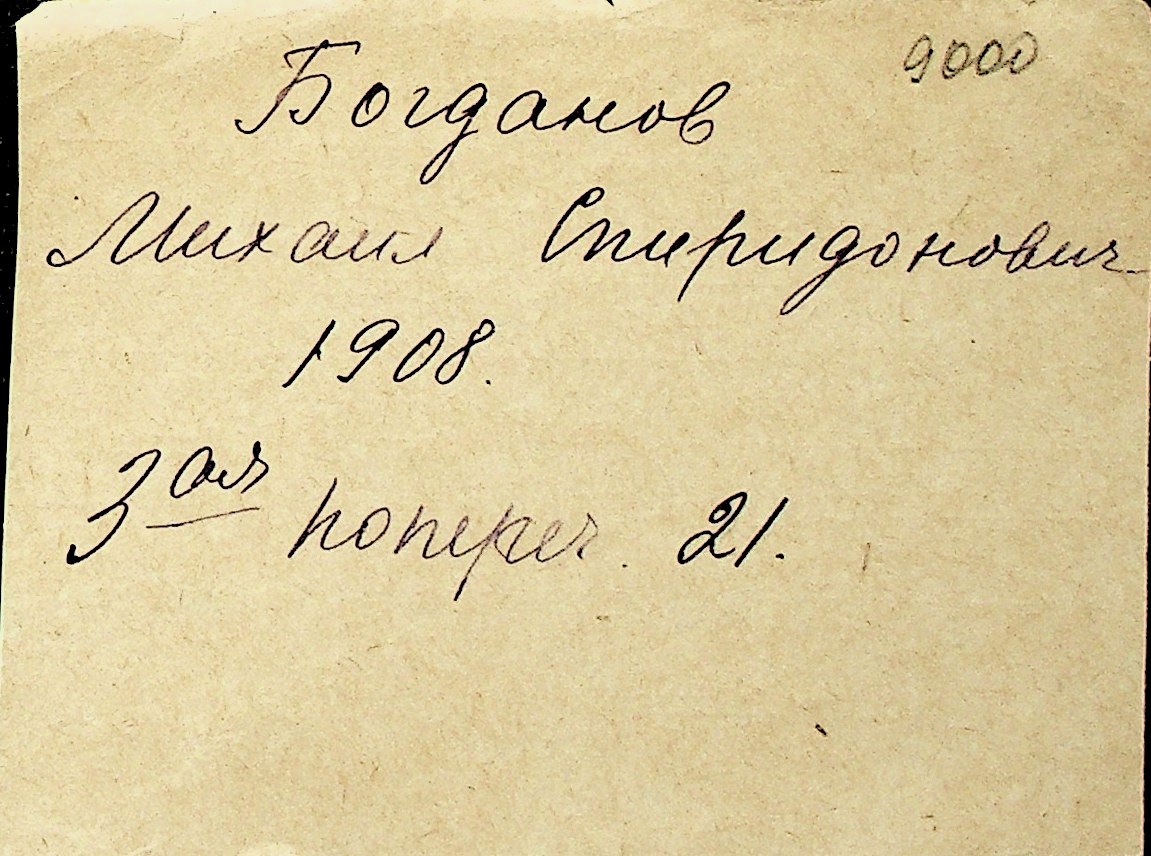 9000
Богданов
Михаил Спиридонович
1908.
3ая попереч. 21.